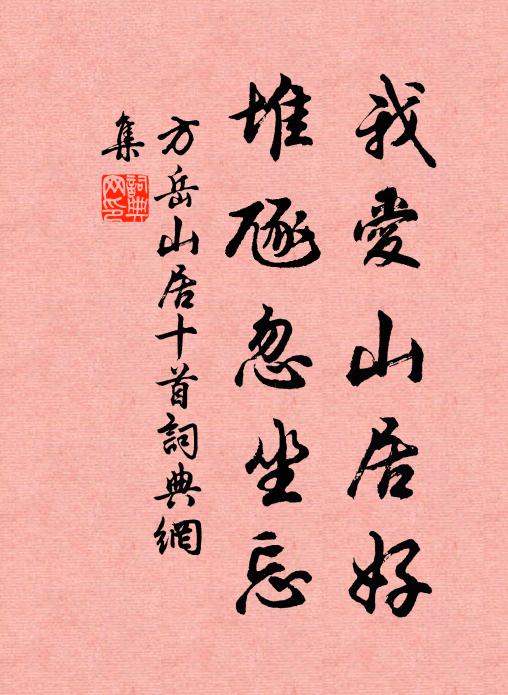 我愛山居好
堆豗忽坐忘
方岳山居十首詞典網
集
詞典
网印